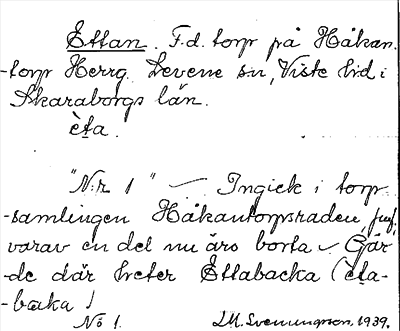 Ettan. F.d. torp på Håkan-
-torp Herrg. Levene sn, Viste hd i
Skaraborgs län.
èta.
"N:r 1" — Ingick i torp
-samlingen Håkantorpsraden,
varav en del nu äro borta – Går
-de där heter Ettabacka (èta-
-backa)
No 1. 1939.